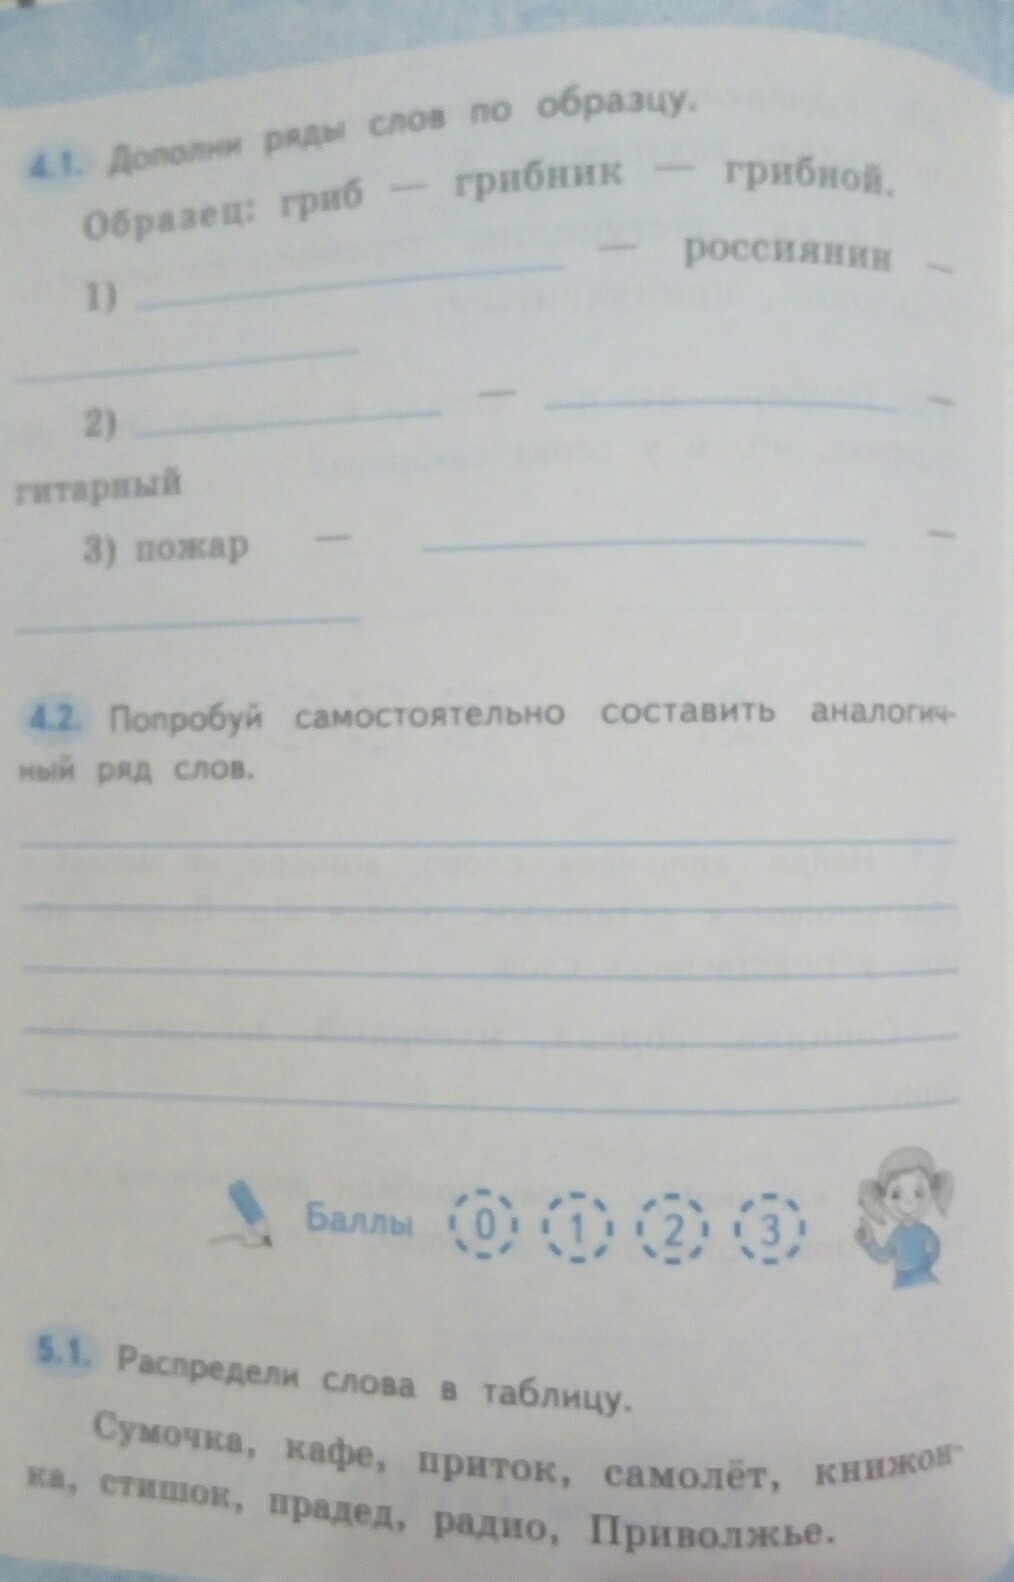 4.1. Дополни ряды слов по образцу.
Образец: гриб — грибник — грибной.
1) — россиянин —
2) — —
гитарный
3) пожар — —
4.2. Попробуй самостоятельно составить аналогич-
ный ряд слов.
Баллы 0 1 2 3
5.1. Распредели слова в таблицу.
Сумочка, кафе, приток, самолёт, книжон-
ка, стишок, прадед, радио, Приволжье.